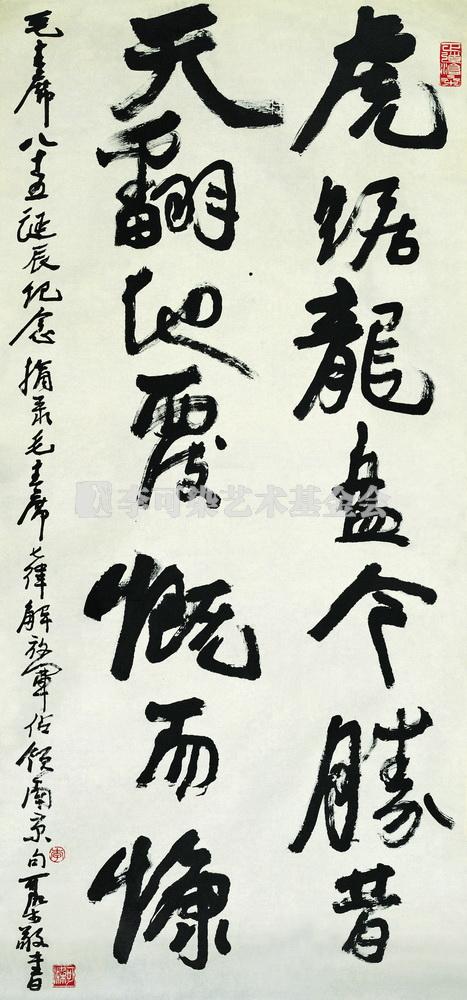 虎踞龍盘今勝昔
天翻地覆慨而慷
毛主席八十五诞辰纪念摘录毛主席七律解放軍佔领南京句可染敬書
李可染艺术基金会